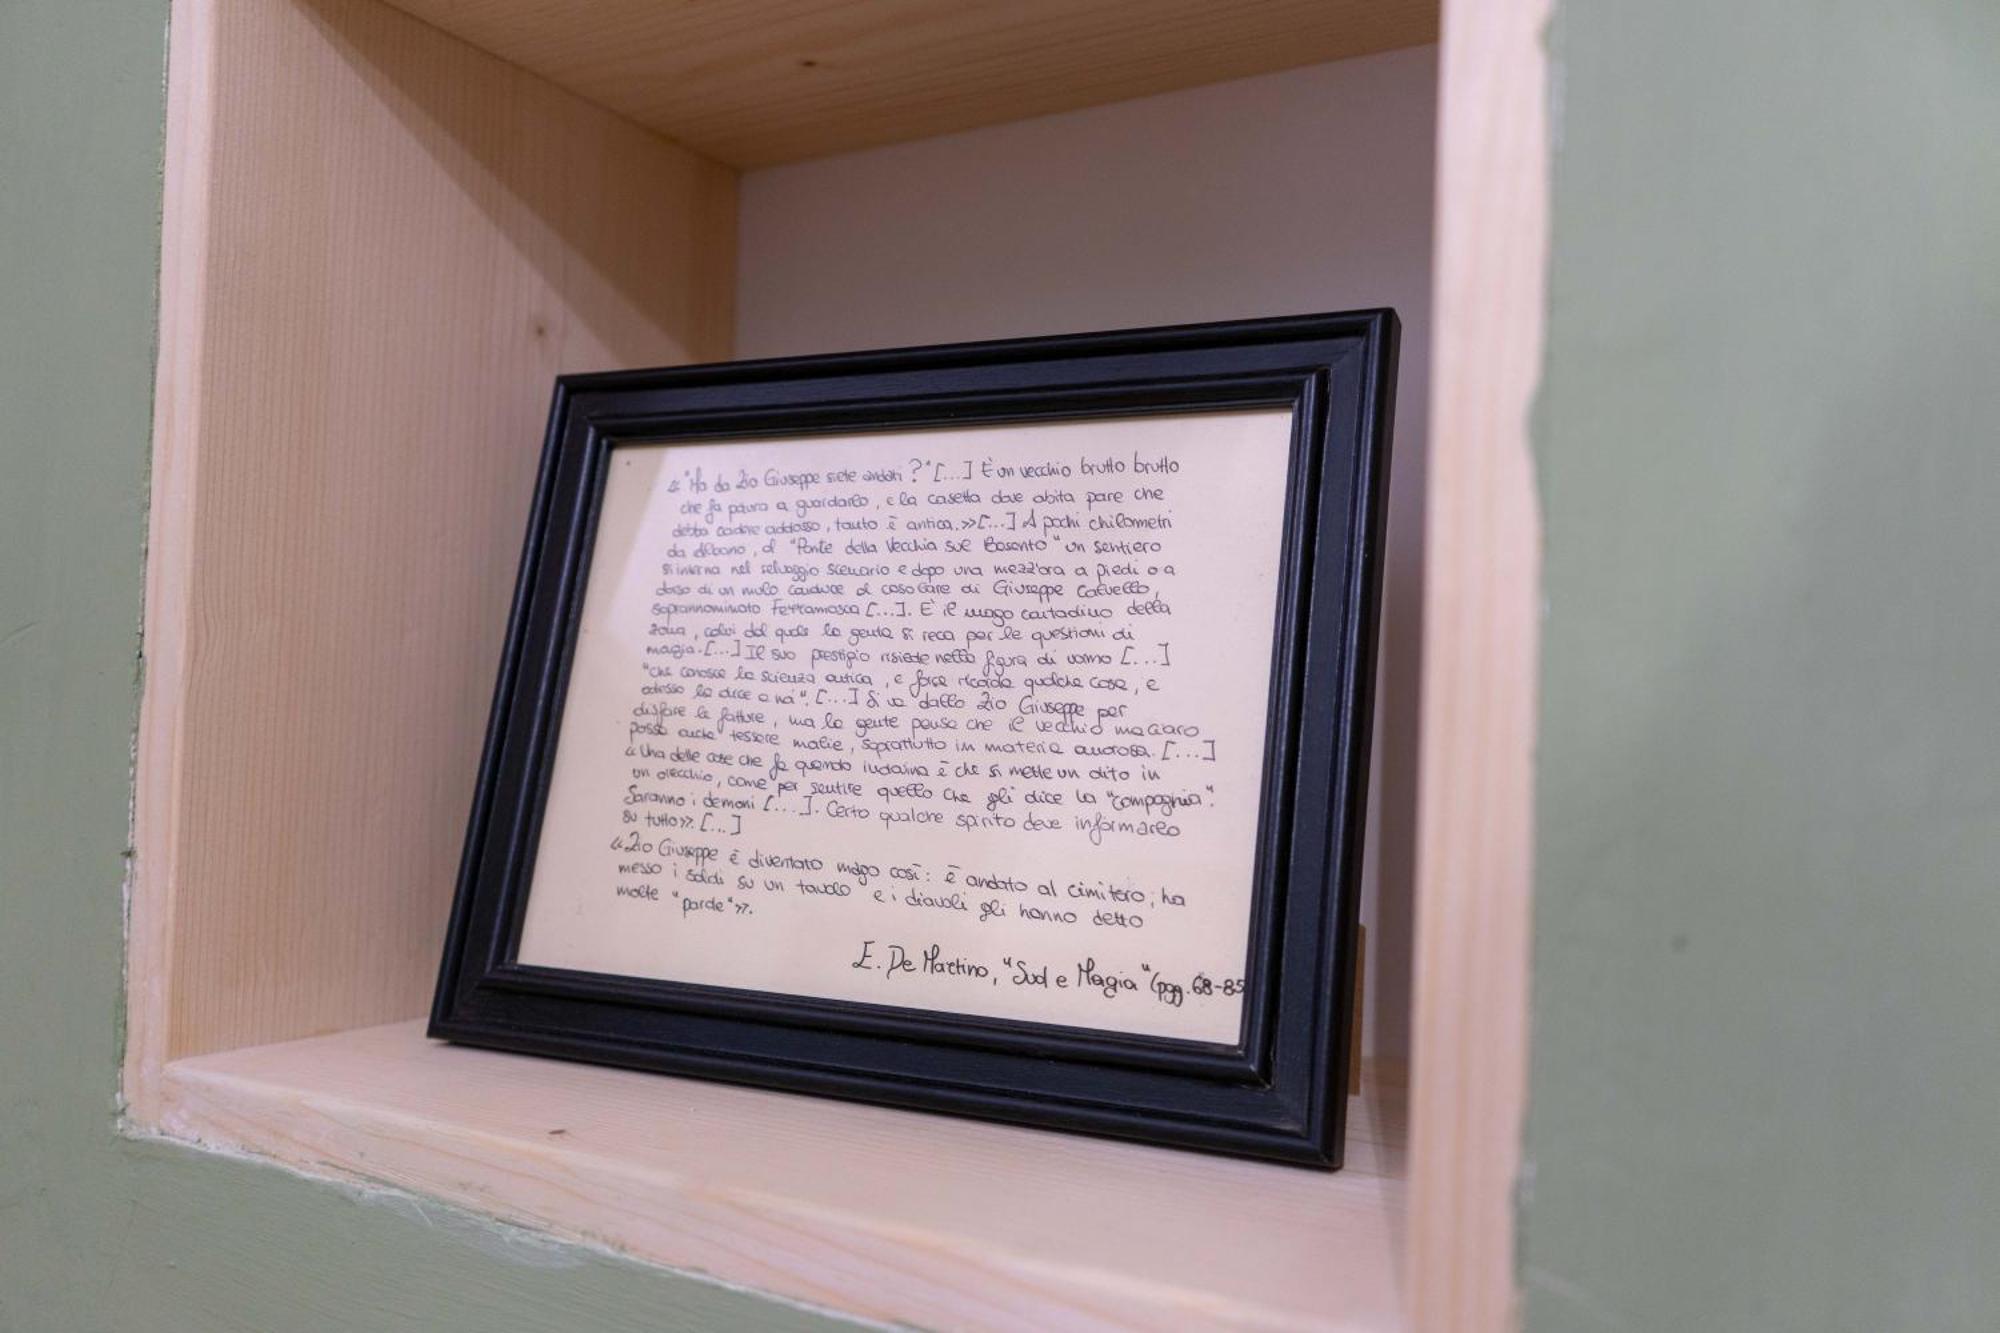 «"Ma da Zio Giuseppe siete andati?" [...] È un vecchio brutto brutto
che fa paura a guardarlo, e la casetta dove abita pare che
debba cadere addosso, tanto è antica.» [...] A pochi chilometri
da Albano, al "Ponte della Vecchia sul Basento" un sentiero
si interna nel selvaggio scenario e dopo una mezz'ora a piedi o a
dorso di un mulo conduce al casolare di Giuseppe Calvello,
soprannominato Ferramosca [...]. È il mago contadino della
zona, colui dal quale la gente si reca per le questioni di
magia. [...] Il suo prestigio risiede nella figura di uomo [...]
"che conosce la scienza antica, e forse ricorda qualche cosa, e
adesso la dice a nà". [...] Si va dallo Zio Giuseppe per
disfare le fatture, ma la gente pensa che il vecchio maciaro
possa anche tessere malie, soprattutto in materia amorosa. [...]
«Una delle cose che fa quando indovina è che si mette un dito in
un orecchio, come per sentire quello che gli dice la "compagnia".
Saranno i demoni [...]. Certo qualche spirito deve informarlo
su tutto». [...]
«Zio Giuseppe è diventato mago così: è andato al cimitero, ha
messo i soldi su un tavolo e i diavoli gli hanno detto
molte "parole"».
E. De Martino, "Sud e Magia" (pgg. 68-85